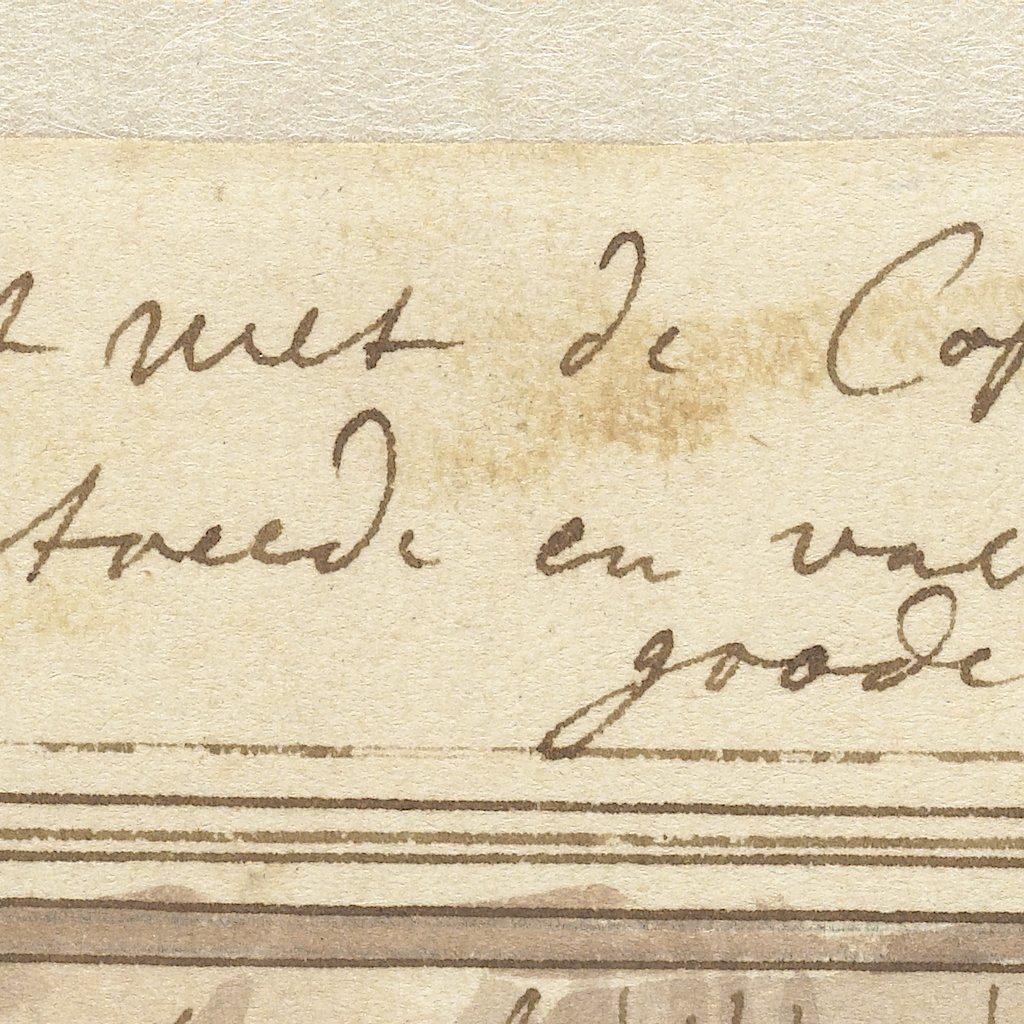 t met de Cop
treede en vae
goode